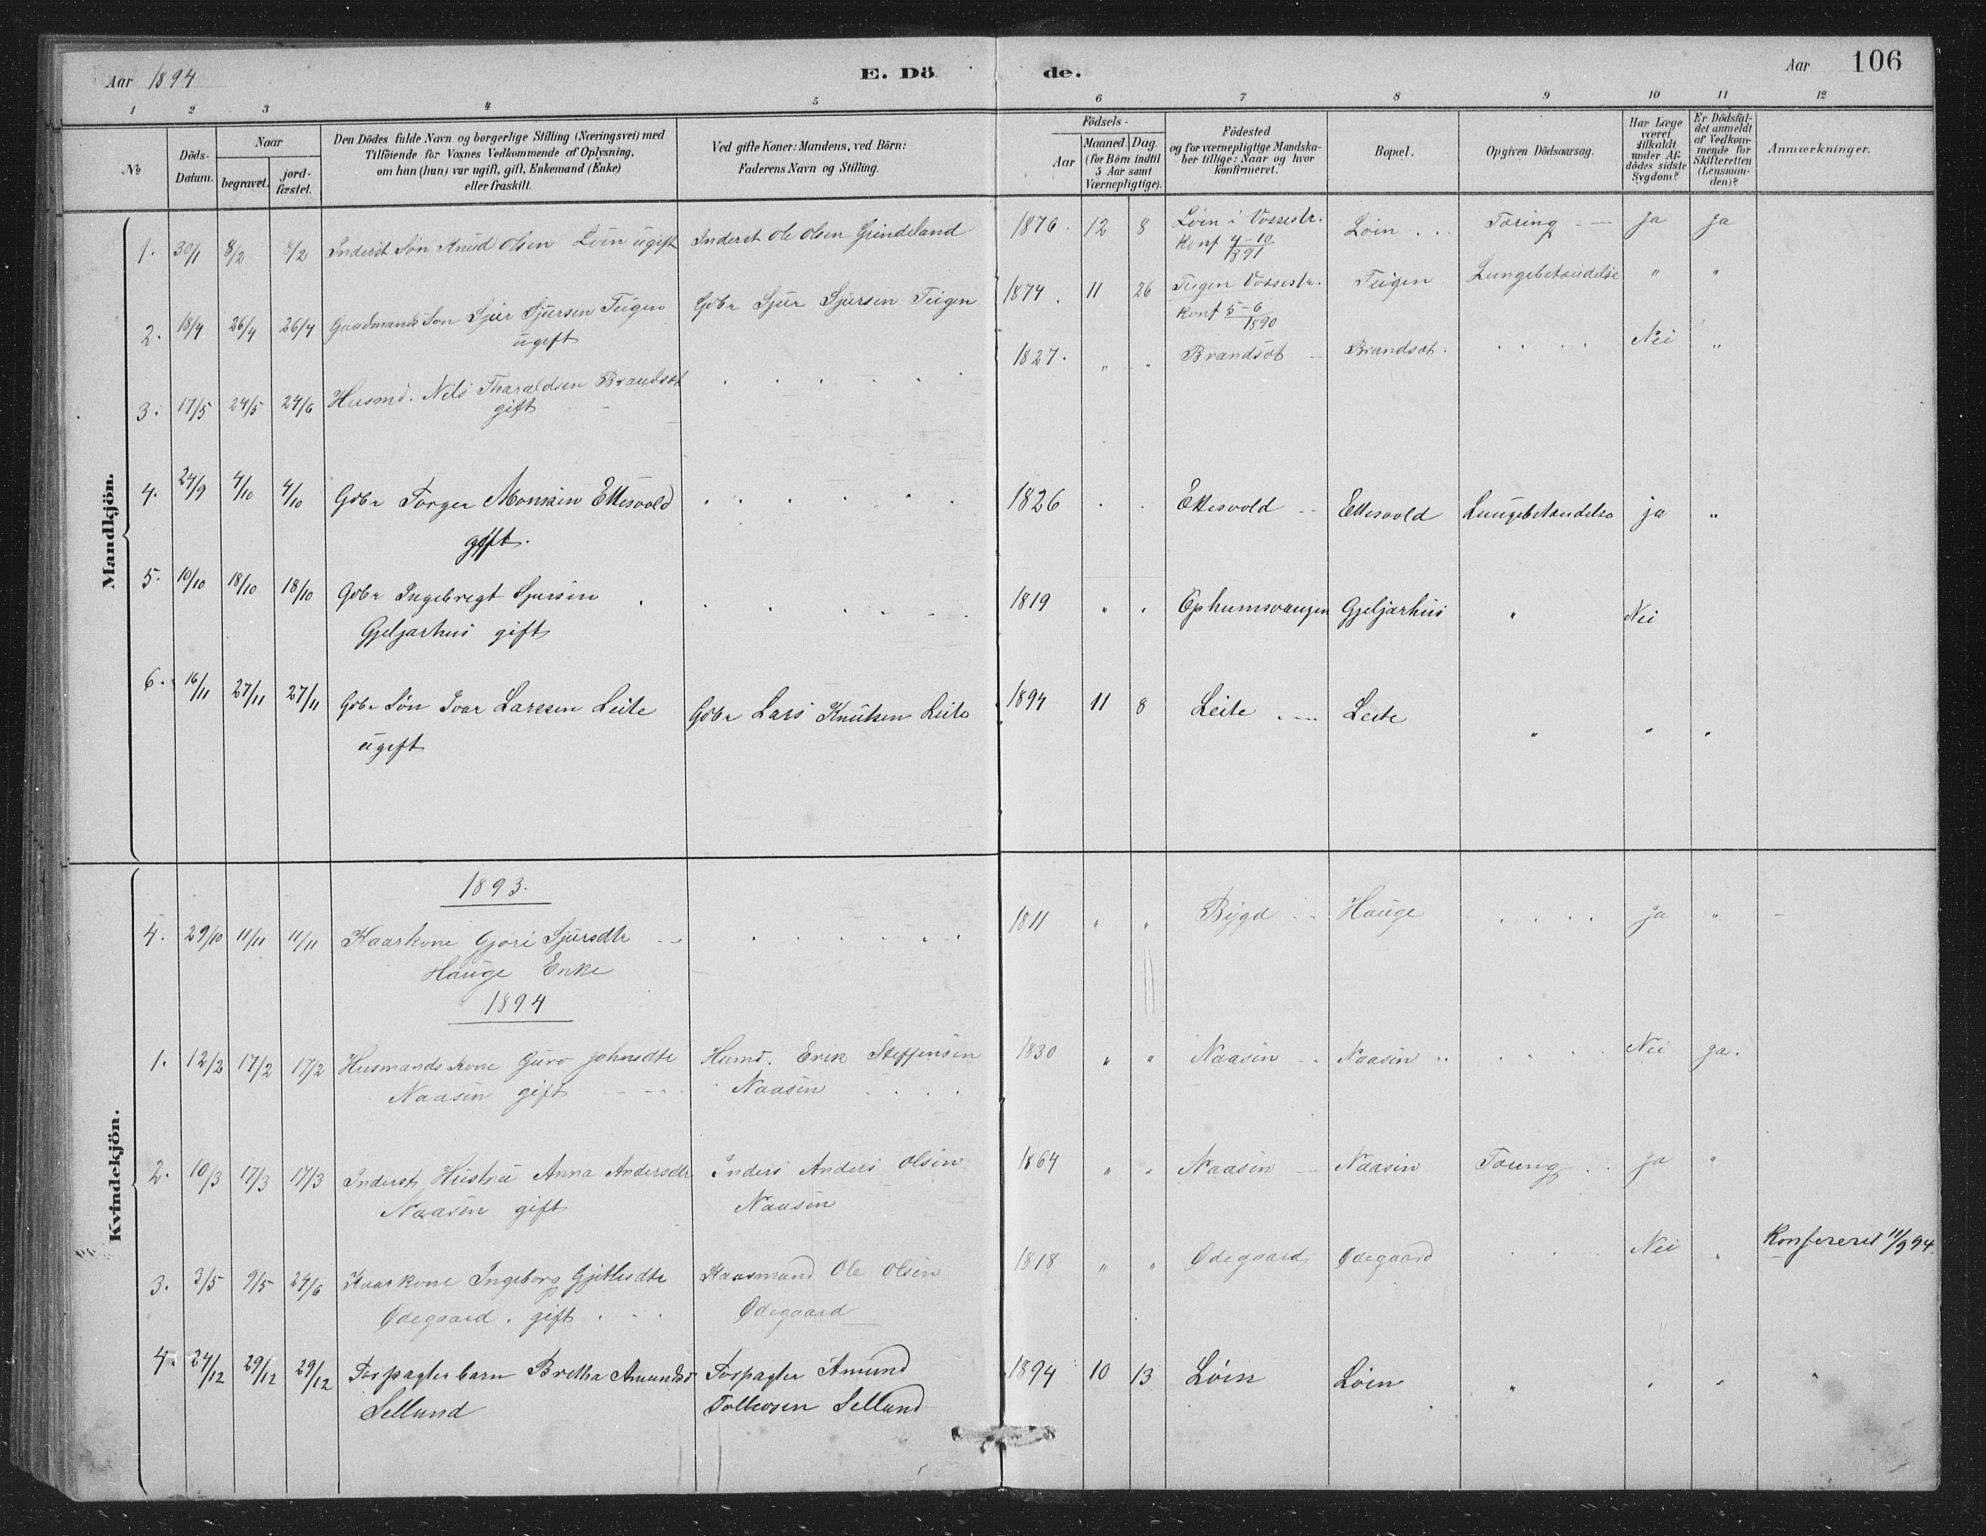 Aar 1894 E. Dö de. Aar 106
1 2 3 4 5 6 7 8 9 10 11 12
No
Döds-Datum.
Naar
begravet.
jordfæstet.
Den Dödes fulde Navn og borgerlige Stilling (Næringsvei) med
Tilföiende for Voxnes Vedkommende af Oplysning,
om han (hun) var ugift, gift, Enkemand (Enke)
eller fraskilt.
Ved gifte Koner: Mandens, ved Börn:
Faderens Navn og Stilling.
Födsels-
Aar
Maaned. Dag.
(for Börn indtil
5 Aar samt
Værnepligtige).
Födested
og for værnepligtige Mandskaber tillige: Naar og hvor
konfirmeret.
Bopæl.
Opgiven Dödsaarsag.
Har Læge
været
tilkaldt
under Afdödes sidste
Sygdom?
Er Dödsfaldet anmeldt
af Vedkommende for
Skifteretten
(Lensmanden)?
Anmærkninger.
Mandkjön.
1. 30/1 8/2 8/2 Inderst Søn Knud Olsen Løin ugift Inderst Ole Olsen Grindeland 1876. 12 8 Løin i Vossestr. Løin . . Tæring ja ja
Konf 4-10/1891
2. 18/4 26/4 26/4 Gaadmands Søn Sjur Sjursen Teigen Gbr Sjur Sjursen Teigen 1874. 11 26 Teigen Vossestr. Teigen Lungebetændelse " "
ugift Konf 5-6/1890
3. 17/5 24/5 24/6 Husmd. Nels Tharaldsen Brandsæt 1827. " " Brandsæt Brandsæt. Nei "
gift
4. 24/9 4/10 4/10 Gbr Torger Monssen Ettesvold 1826 Ettesvold Ettesvold Lungebetændelse ja "
gift.
5. 10/10 18/10 18/10 Gbr Ingebregt Sjursen 1819 " " Ophumsvangen Gjeljarhus " Nei
Gjeljarhus gift
6. 16/11 27/11 27/11 Gbr Søn Ivar Larssen Leite Gbr Lars Knutsen Leite 1894 11 8 Leite Leite " " "
ugift
Kvindekjön.
1893.
4. 29/10 11/11 11/11 Kaarkone Gjøri Sjursdtr 1811 " " Bygd Hauge ja "
Hauge Enke
1894
1. 12/2 17/2 17/2 Husmands Kone Guro Johnsdtr Husmd. Erik Steffensen 1830 " " Naasen Naasen Nei ja.
Naasen gift Naasen
2. 10/3 17/3 17/3 Inderst Hustru Anna Andersdtr Inders Anders Olsen 1864 " " Naasen Naasen Tæring ja "
Naasen gift Naasen
3. 3/5 9/5 24/6 Kaarkone Ingeborg Gjetlesdtr Kaarmand Ole Olsen 1818 " " Ødegaard Ødegaard Nei " Konfereret 11/9 94.
Ødegaard. gift Ødegaard
4. 24/12 29/12 29/12 Forpagterbarn Bretha Amundsd Forpagter Amund 1894 10 13 Løin Løin " " " "
Sellund Tollevsen Sellund